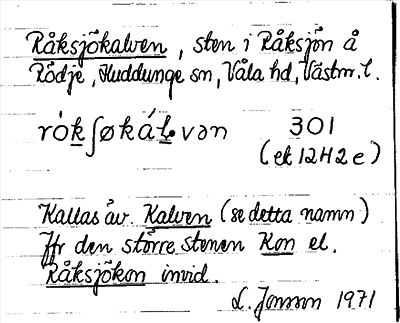 Råksjökalven, sten i Råksjön å
Rödje, Huddunge sn, Våla hd, Västm. l.
ròkʃøkál·vən 301
(ek 12H2e)
Kallas äv. Kalven (se detta namn)
Jfr den större stenen Kon el.
Råksjökon invid.
L. Jonson 1971